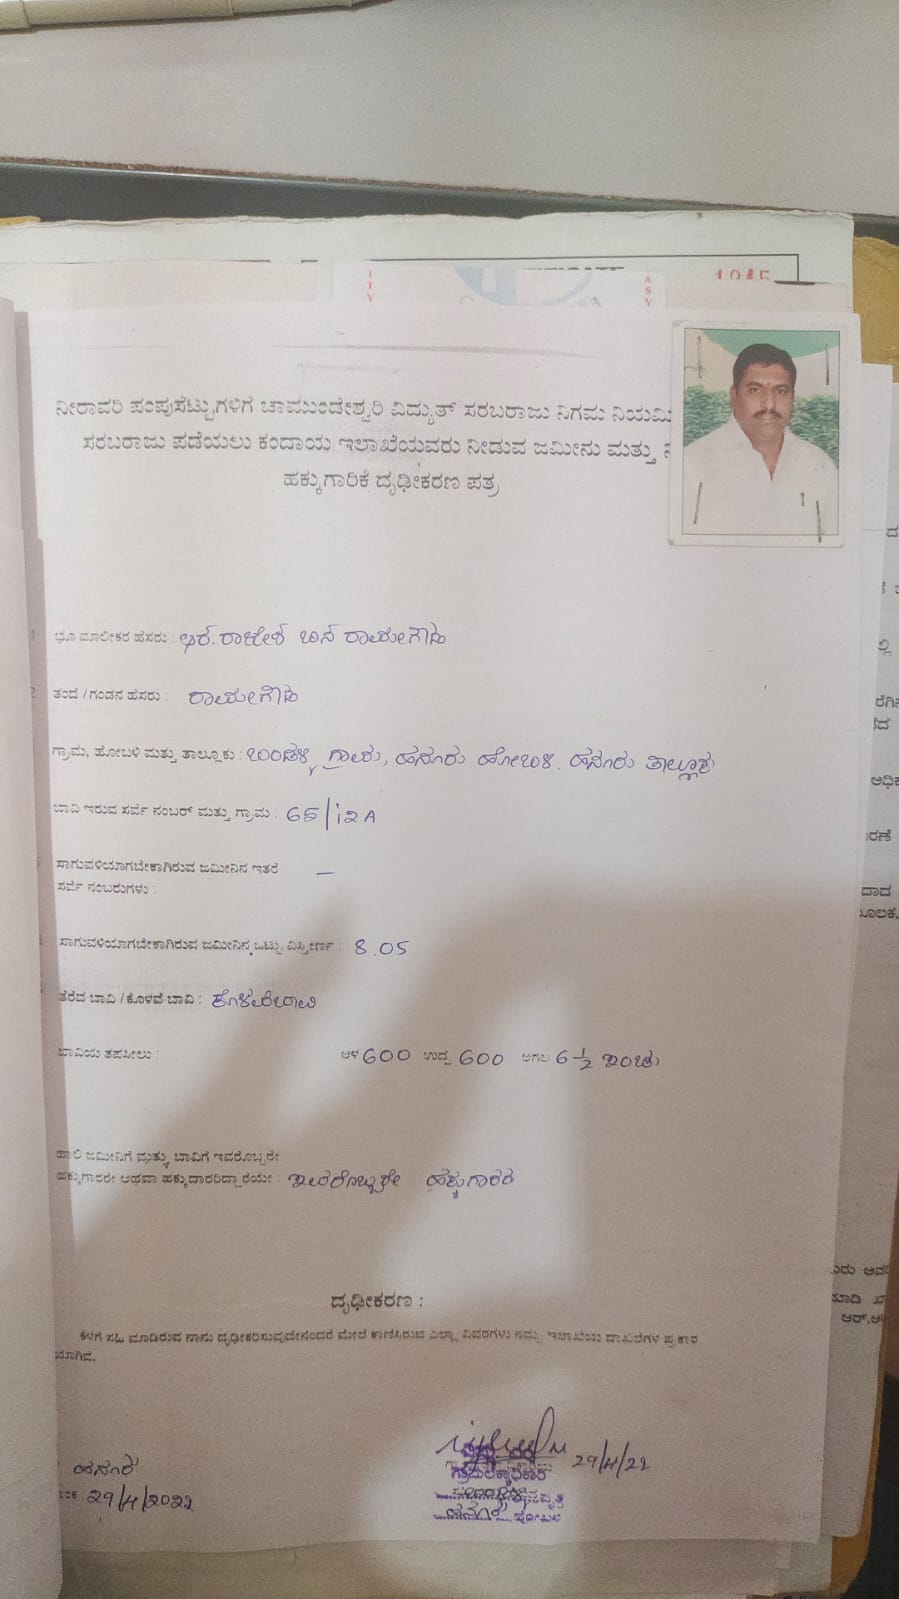 1945
ನೀರಾವರಿ ಪಂಪುಸೆಟ್ಟುಗಳಿಗೆ ಚಾಮುಂಡೇಶ್ವರಿ ವಿದ್ಯುತ್ ಸರಬರಾಜು ನಿಗಮ ನಿಯಮಿ
ಸರಬರಾಜು ಪಡೆಯಲು ಕಂದಾಯ ಇಲಾಖೆಯವರು ನೀಡುವ ಜಮೀನು ಮತ್ತು
ಹಕ್ಕುಗಾರಿಕೆ ದೃಢೀಕರಣ ಪತ್ರ
ಭೂ ಮಾಲೀಕರ ಹೆಸರು : ಆರ್.ರಾಜೇಶ ಬಿನ್ ರಾಮೇಗೌಡ
ತಂದೆ / ಗಂಡನ ಹೆಸರು : ರಾಮೇಗೌಡ
ಗ್ರಾಮ, ಹೋಬಳಿ ಮತ್ತು ತಾಲ್ಲೂಕು : ಬಂಡಳ್ಳಿ ಗ್ರಾಮ, ಹನೂರು ಹೋಬಳಿ. ಹನೂರು ತಾಲ್ಲೂಕು
ಬಾವಿ ಇರುವ ಸರ್ವೆ ನಂಬರ್ ಮತ್ತು ಗ್ರಾಮ : 65/12A
ಸಾಗುವಳಿಯಾಗಬೇಕಾಗಿರುವ ಜಮೀನಿನ ಇತರೆ —
ಸರ್ವೆ ನಂಬರುಗಳು :
ಸಾಗುವಳಿಯಾಗಬೇಕಾಗಿರುವ ಜಮೀನಿನ ಒಟ್ಟು ವಿಸ್ತೀರ್ಣ : 8.05
ತೆರೆದ ಬಾವಿ / ಕೊಳವೆ ಬಾವಿ : ಕೊಳವೆಬಾವಿ
ಬಾವಿಯ ತಪಸೀಲು : ಆಳ 600 ಉದ್ದ 600 ಅಗಲ 6 1/2 ಇಂಚು
ಹಾಲಿ ಜಮೀನಿಗೆ ಮತ್ತು ಬಾವಿಗೆ ಇವರೊಬ್ಬರೇ
ಹಕ್ಕುಗಾರರೇ ಅಥವಾ ಹಕ್ಕುದಾರರಿದ್ದಾರೆಯೇ : ಇವರೊಬ್ಬರೇ ಹಕ್ಕುಗಾರರು
ದೃಢೀಕರಣ :
ಕೆಳಗೆ ಸಹಿ ಮಾಡಿರುವ ನಾನು ದೃಢೀಕರಿಸುವುದೇನೆಂದರೆ ಮೇಲೆ ಕಾಣಿಸಿರುವ ಎಲ್ಲಾ ವಿವರಗಳು ನಮ್ಮ ಇಲಾಖೆಯ ದಾಖಲೆಗಳ ಪ್ರಕಾರ
ಯಾಗಿದೆ.
29/4/22
ಗ್ರಾಮಲೆಕ್ಕಾಧಿಕಾರಿ
ಹನೂರು
29/4/2022
ಹನೂರು ಹೋಬಳಿ